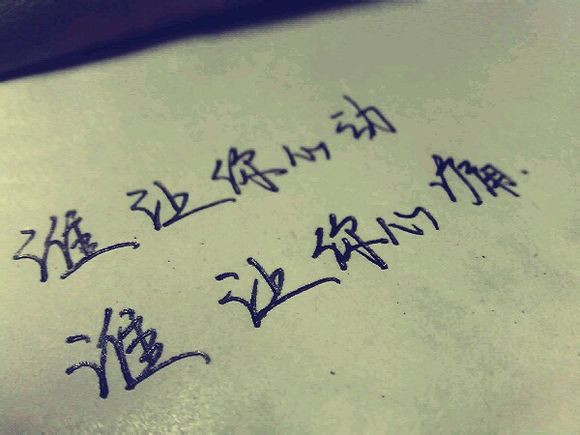 谁让你心动
谁让你心痛.